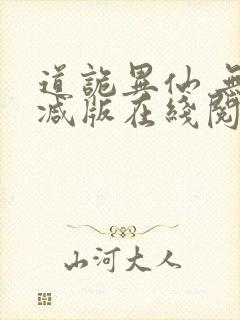 道詭異仙 無
減版在綫閱
山河大人